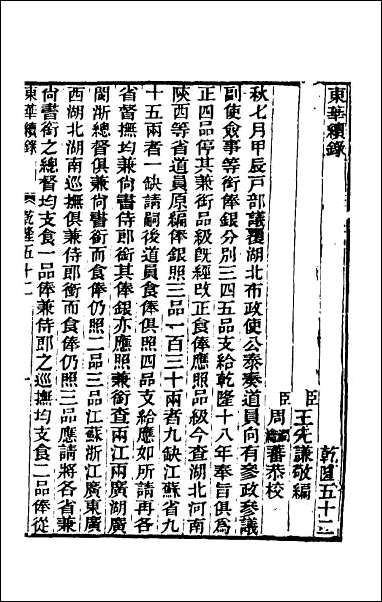 東華續錄
乾隆五十二
臣王先謙敬編
臣周蕃恭校
秋七月甲辰戸部議覆湖北布政使公泰奏道員向有參政參議
副使僉事等銜俸銀分別三四五品支給乾隆十八年奉旨俱爲
正四品停其兼銜品級旣經改正食俸應照品級今查湖北河南
陝西等省道員原編俸銀照三品一百三十兩者九缺江蘇省九
十五兩者一缺請嗣後道員食俸俱照四品支給應如所請再各
省督撫均兼尙書侍郎銜其俸銀亦應照兼銜查兩江兩廣湖廣
閩浙總督俱兼尙書銜而食俸仍照二品三品江蘇浙江廣東廣
西湖北湖南巡撫俱兼侍郎銜而食俸仍照三品應請將各省兼
尙書銜之總督均支食一品俸兼侍郎之巡撫均支食二品俸從
東華續錄 乾隆五十二 一